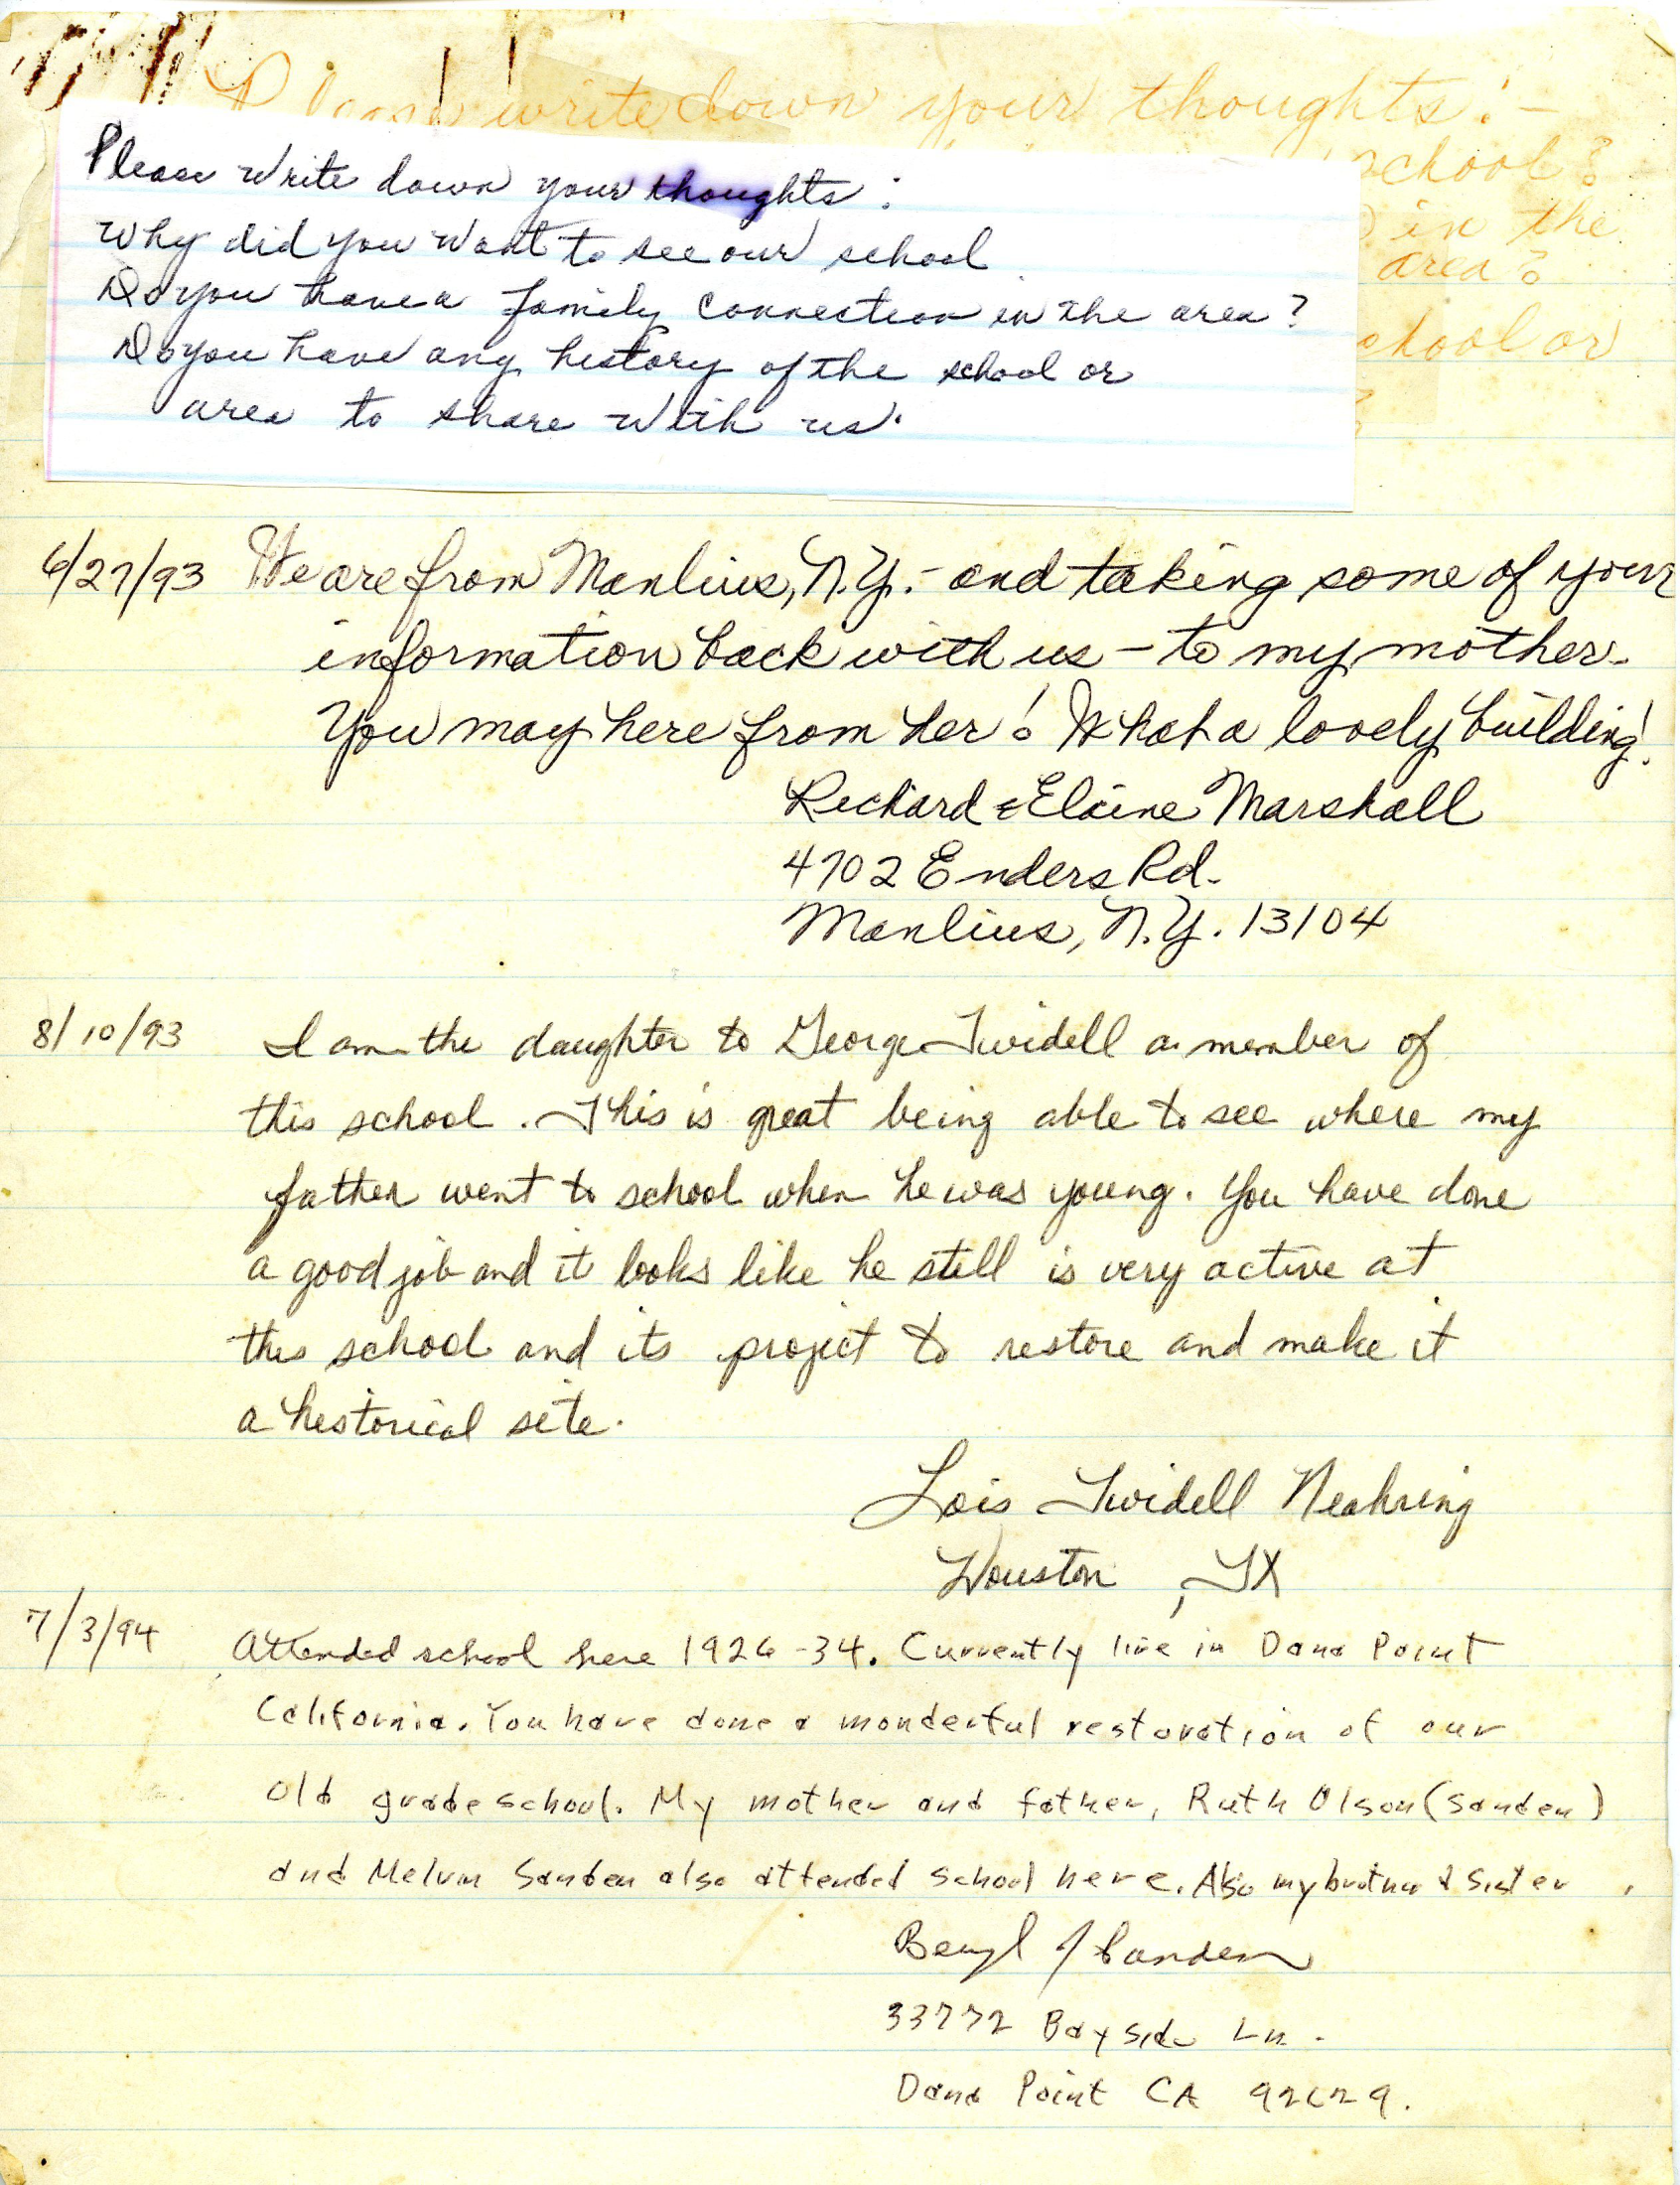 Please write down your thoughts: -
school?
in the
area?
school or
Please write down your thoughts:
Why did you want to see our school
Do you have a family connection in the area?
Do you have any history of the school or
area to share with us.
6/27/93 We are from Manlius, N.Y. - and taking some of your
information back with us - to my mother.
You may here from her! What a lovely building!
Richard & Elaine Marshall
4702 Enders Rd.
Manlius, N.Y. 13104
8/10/93 I am the daughter to George Twidell a member of
this school. This is great being able to see where my
father went to school when he was young. You have done
a good job and it looks like he still is very active at
this school and its project to restore and make it
a historical site.
Lois Twidell Neahring
Houston, TX
7/3/94 Attended school here 1926-34. Currently live in Dana Point
California. You have done a wonderful restoration of our
old grade school. My mother and father, Ruth Olson (Sanden)
and Melvin Sanden also attended school here. Also my brother & sister
Beryl J Sanden
33772 Bayside Ln.
Dana Point CA 92629.